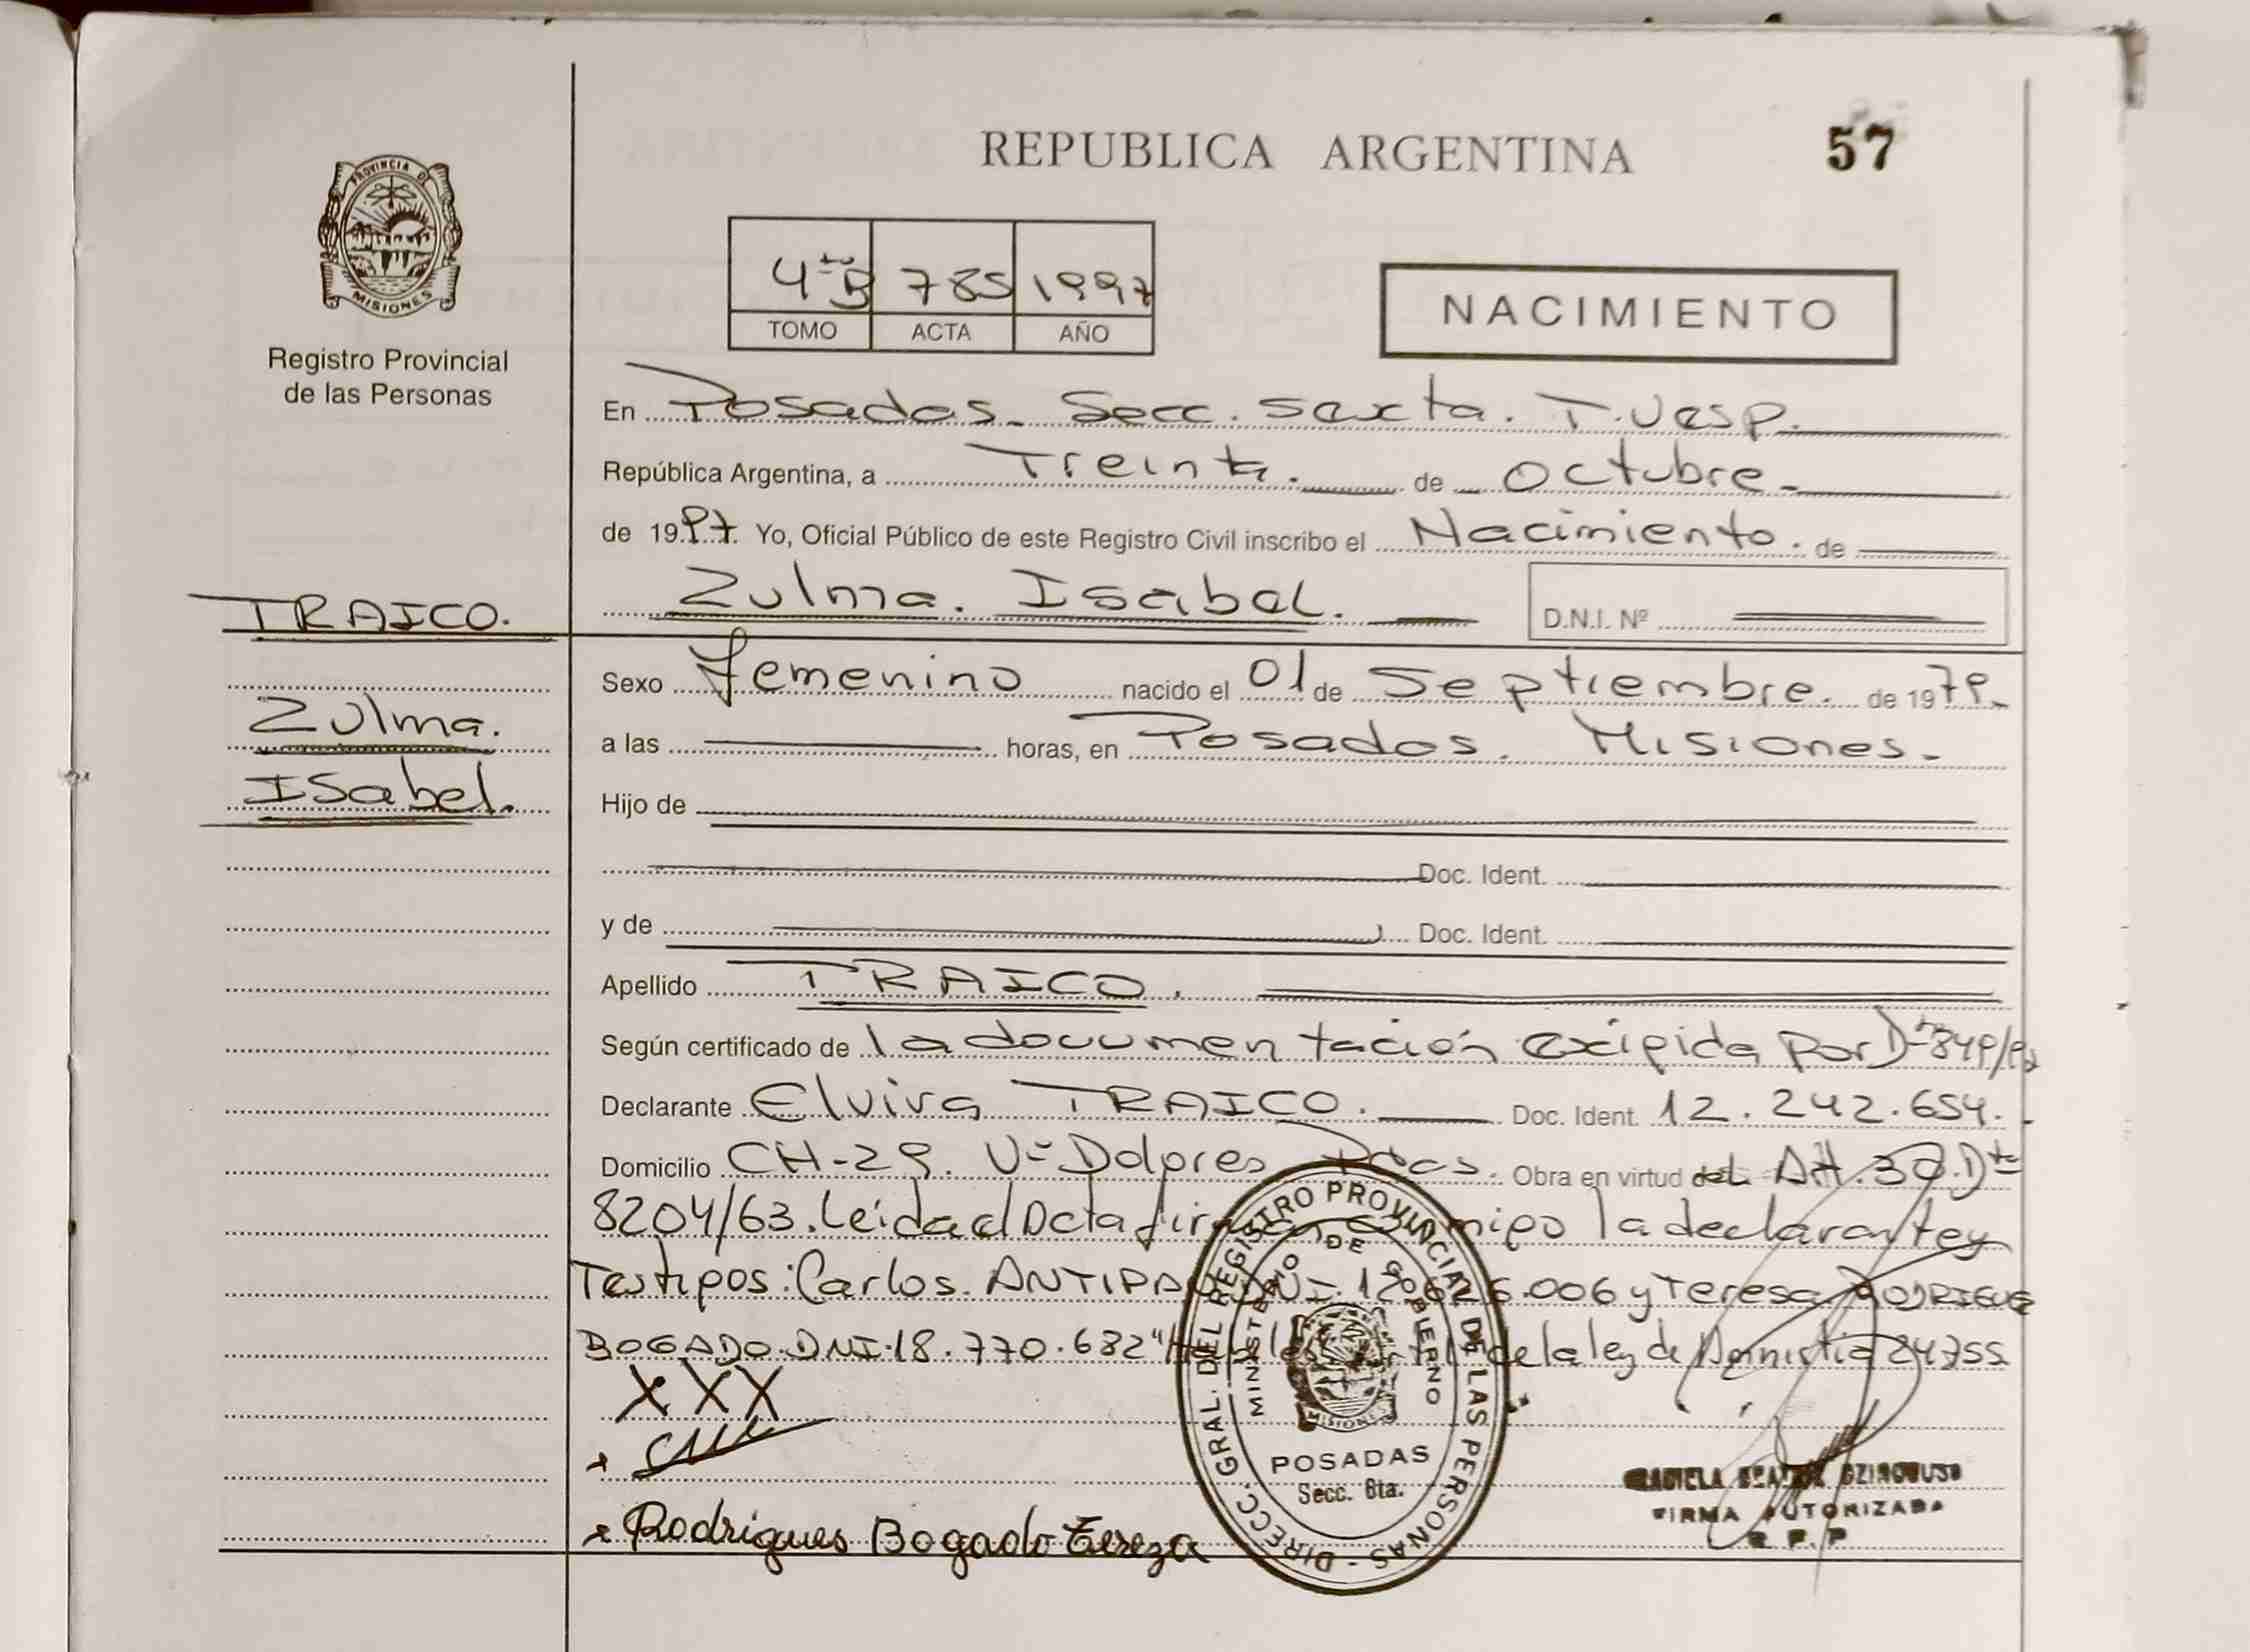 REPUBLICA ARGENTINA
57
PROVINCIA DE
MISIONES
Registro Provincial
de las Personas
4to B 785 1997
TOMO ACTA AÑO
NACIMIENTO
En Posadas. Secc. Sexta. T. Vesp.
República Argentina, a Treinta. de Octubre.
de 1997. Yo, Oficial Público de este Registro Civil inscribo el Nacimiento. de
Zulma. Isabel. D.N.I. Nº
TRAICO.
Zulma.
Isabel.
Sexo femenino nacido el 01 de Septiembre. de 1979.
a las horas, en Posadas. Misiones.
Hijo de
Doc. Ident.
y de Doc. Ident.
Apellido TRAICO.
Según certificado de la documentación exigida por Dto 849/
Declarante Elvira TRAICO. Doc. Ident. 12.242.654.
Domicilio CH-29. Vª Dolores Pdas. Obra en virtud del Art. 30. Dto
8204/63. Leida el Acta firman conmigo la declarante y
Testigos: Carlos. DNI. 006 y Teresa RODRIGUEZ
BOGADO. DNI. 18.770.682 de la ley de Amnistia 24755
XXX
Rodrigues Bogado Tereza
DIRECC. GRAL. DEL REGISTRO PROVINCIAL DE LAS PERSONAS -
MINISTERIO DE GOBIERNO
MISIONES
POSADAS
Secc. 6ta.
FIRMA AUTORIZADA
R. P. P